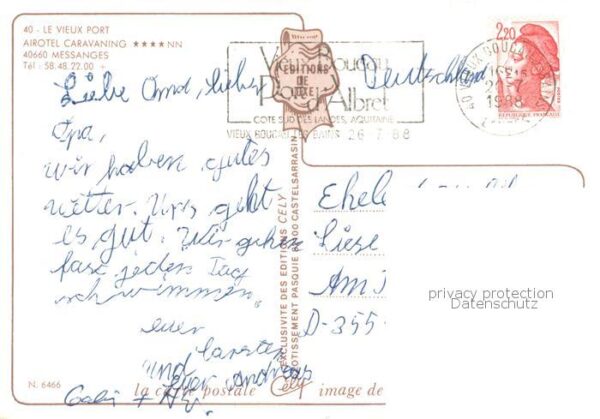 40 - LE VIEUX PORT
AIROTEL CARAVANING ★★★★ NN
40660 MESSANGES
Tél : 58.48.22.00 +
Liebe Oma, lieber
Opa,
wir haben gutes
wetter. Uns geht
es gut. Wir gehen
fast jeden Tag
schwimmen.
euer
Carsten
und Andreas
Gabi +
Deutschland
Vieux Boucau
Port d'Albret
COTE SUD DES LANDES, AQUITAINE
VIEUX BOUCAU LES BAINS 26-7 88
EDITIONS
DE
2,20
1988
REPUBLIQUE FRANÇAISE
EXCLUSIVITE DES EDITIONS CELY
LOTISSEMENT PASQUIE 82100 CASTELSARRASIN
Liese
Am
D-355
privacy protection
Datenschutz
N. 6466
la carte postale Cely image de